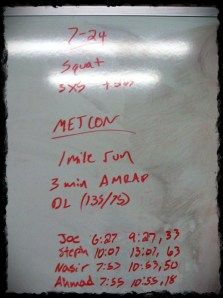 7-24
Squat
5x5
METCON
1 mile run
3 min AMRAP
DL (135/75)
Joe 6:27 9:27, 33
Steph 10:07 13:07, 63
Nasir 7:53 10:53, 50
Ahmad 7:55 10:55, 18